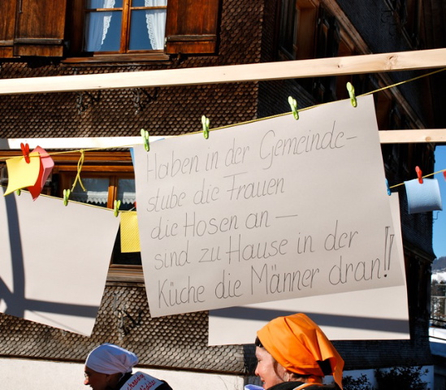 Haben in der Gemeinde-
stube die Frauen
die Hosen an —
sind zu Hause in der
Küche die Männer dran!!